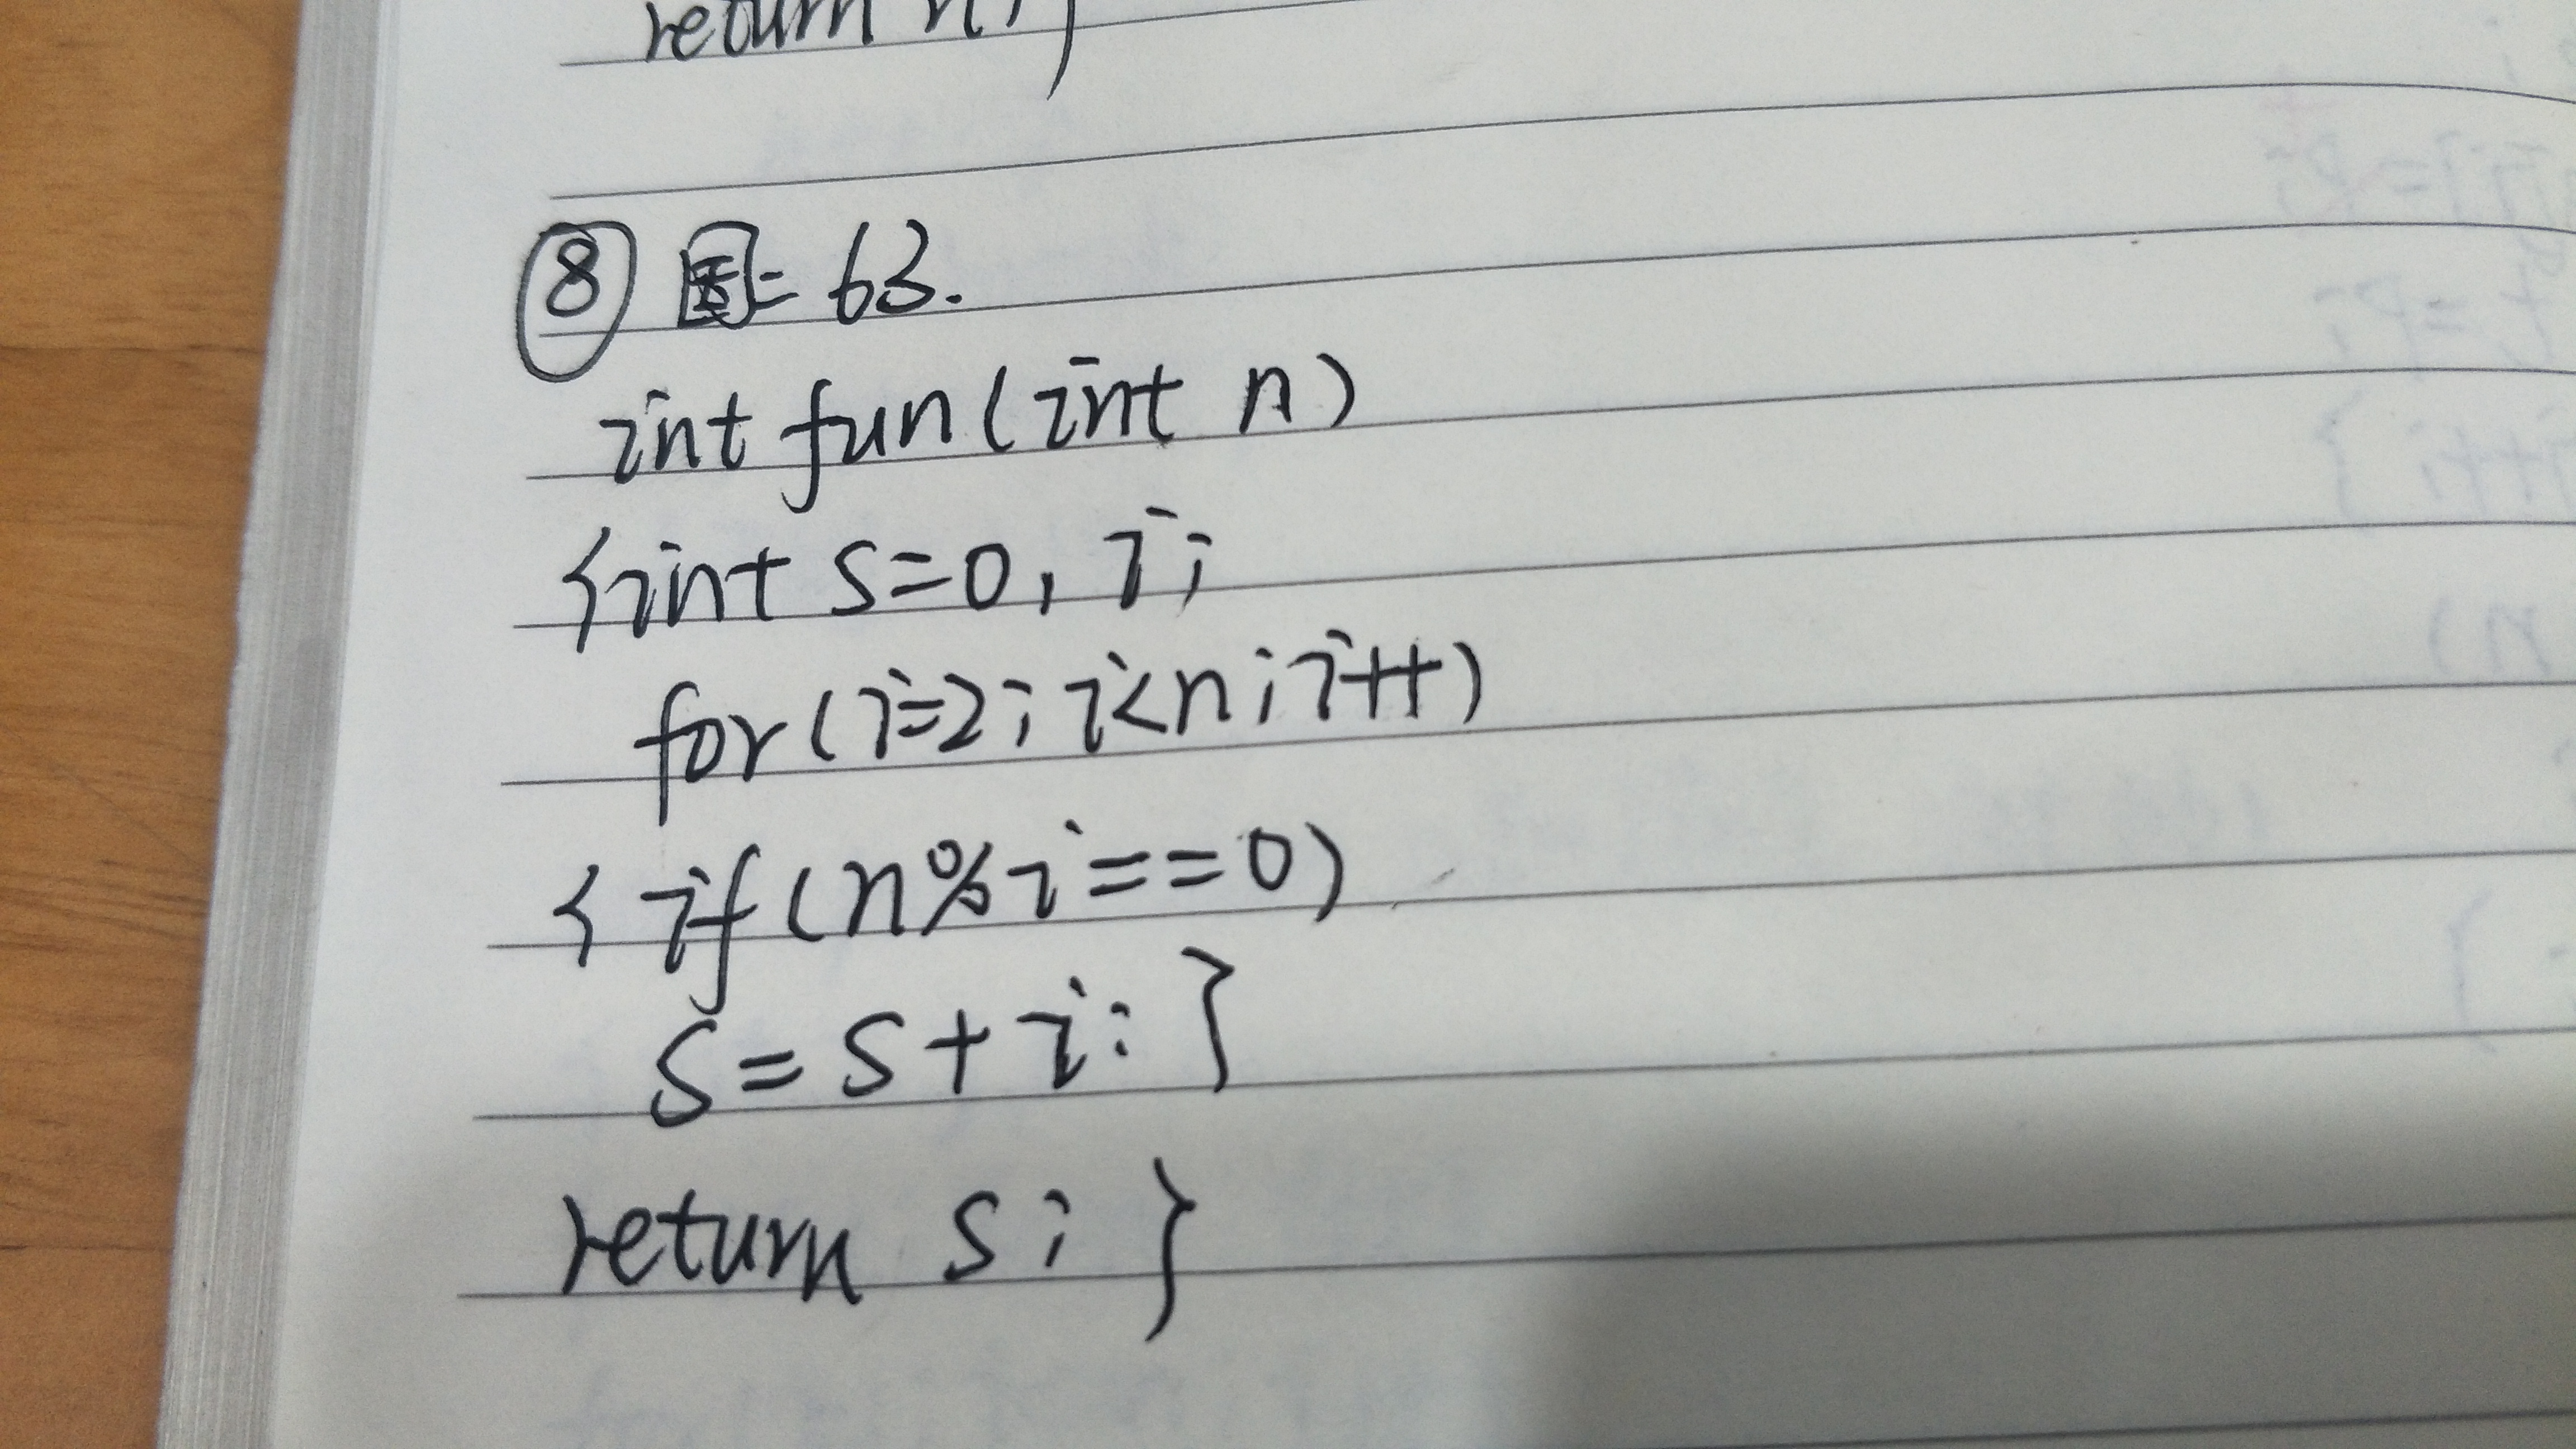 return n; }
⑧ = 63.
int fun(int n)
{int s=0, i;
for(i=2; i<n; i++)
{ if(n%i==0)
s=s+i; }
return s; }